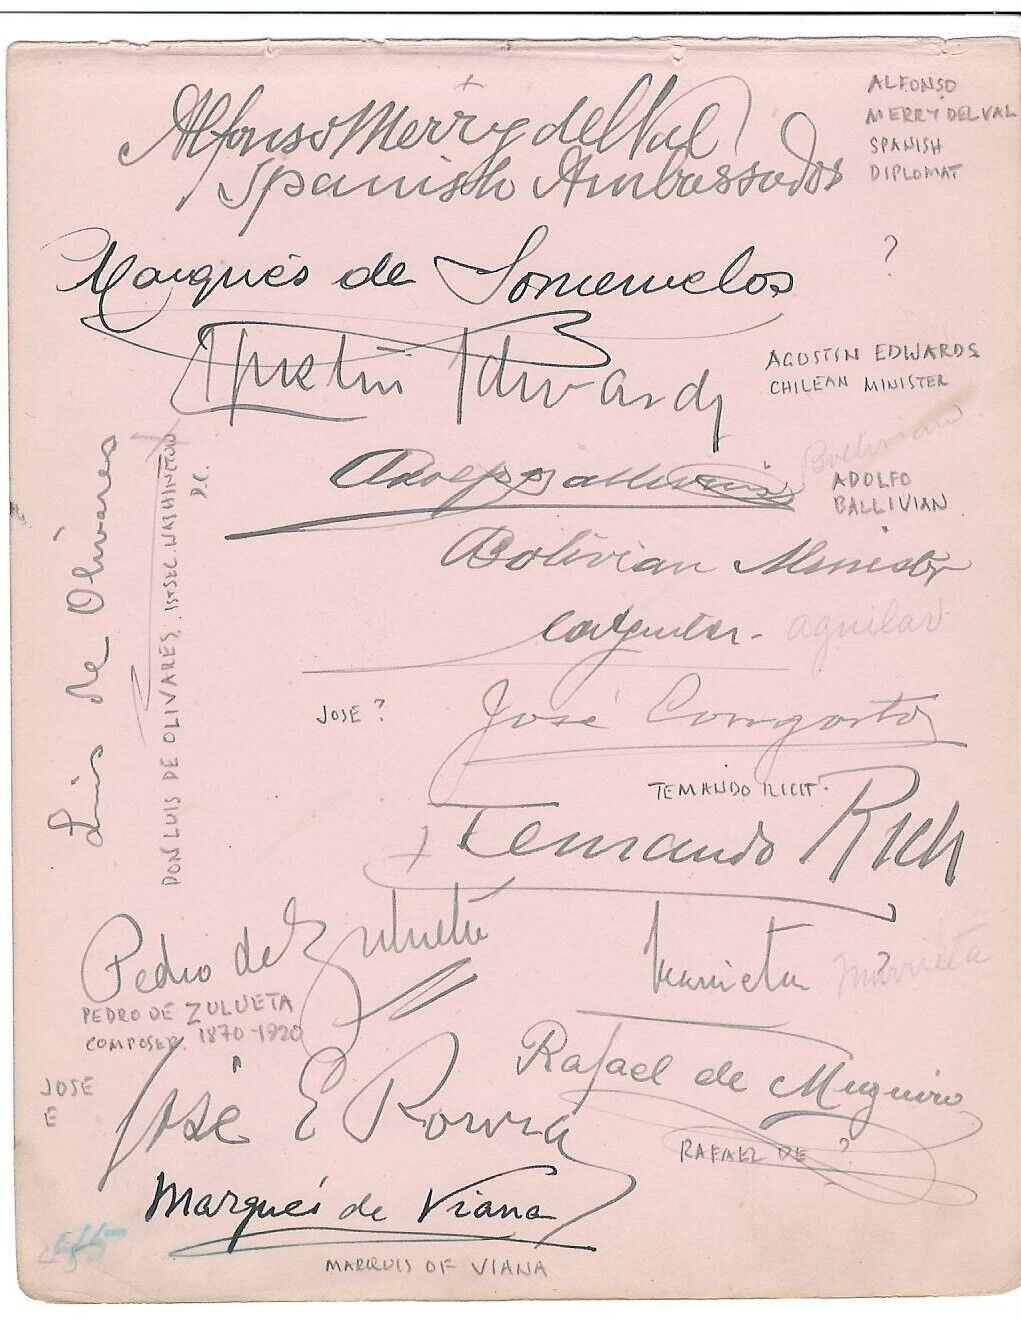 Alfonso Merry del Val
Spanish Ambassador
ALFONSO
MERRY DEL VAL
SPANISH
DIPLOMAT
Marqués de Someruelos
?
Agustin Edwards
AGUSTIN EDWARDS
CHILEAN MINISTER
Adolfo Ballivian
Bolivian
ADOLFO
BALLIVIAN
Bolivian Minister
aguilar
Luis de Olivares
DON LUIS DE OLIVARES, 1st SEC. WASHINGTON
D.C.
JOSE ?
José
TEMANDO RICIT.
Fernando Rich
Pedro de Zulueta
PEDRO DE ZULUETA
COMPOSER. 1870-1920
?
Murrieta
Rafael de Muguiro
RAFAEL DE ?
José E Romra
JOSE
E
Marqués de Viana
MARQUIS OF VIANA